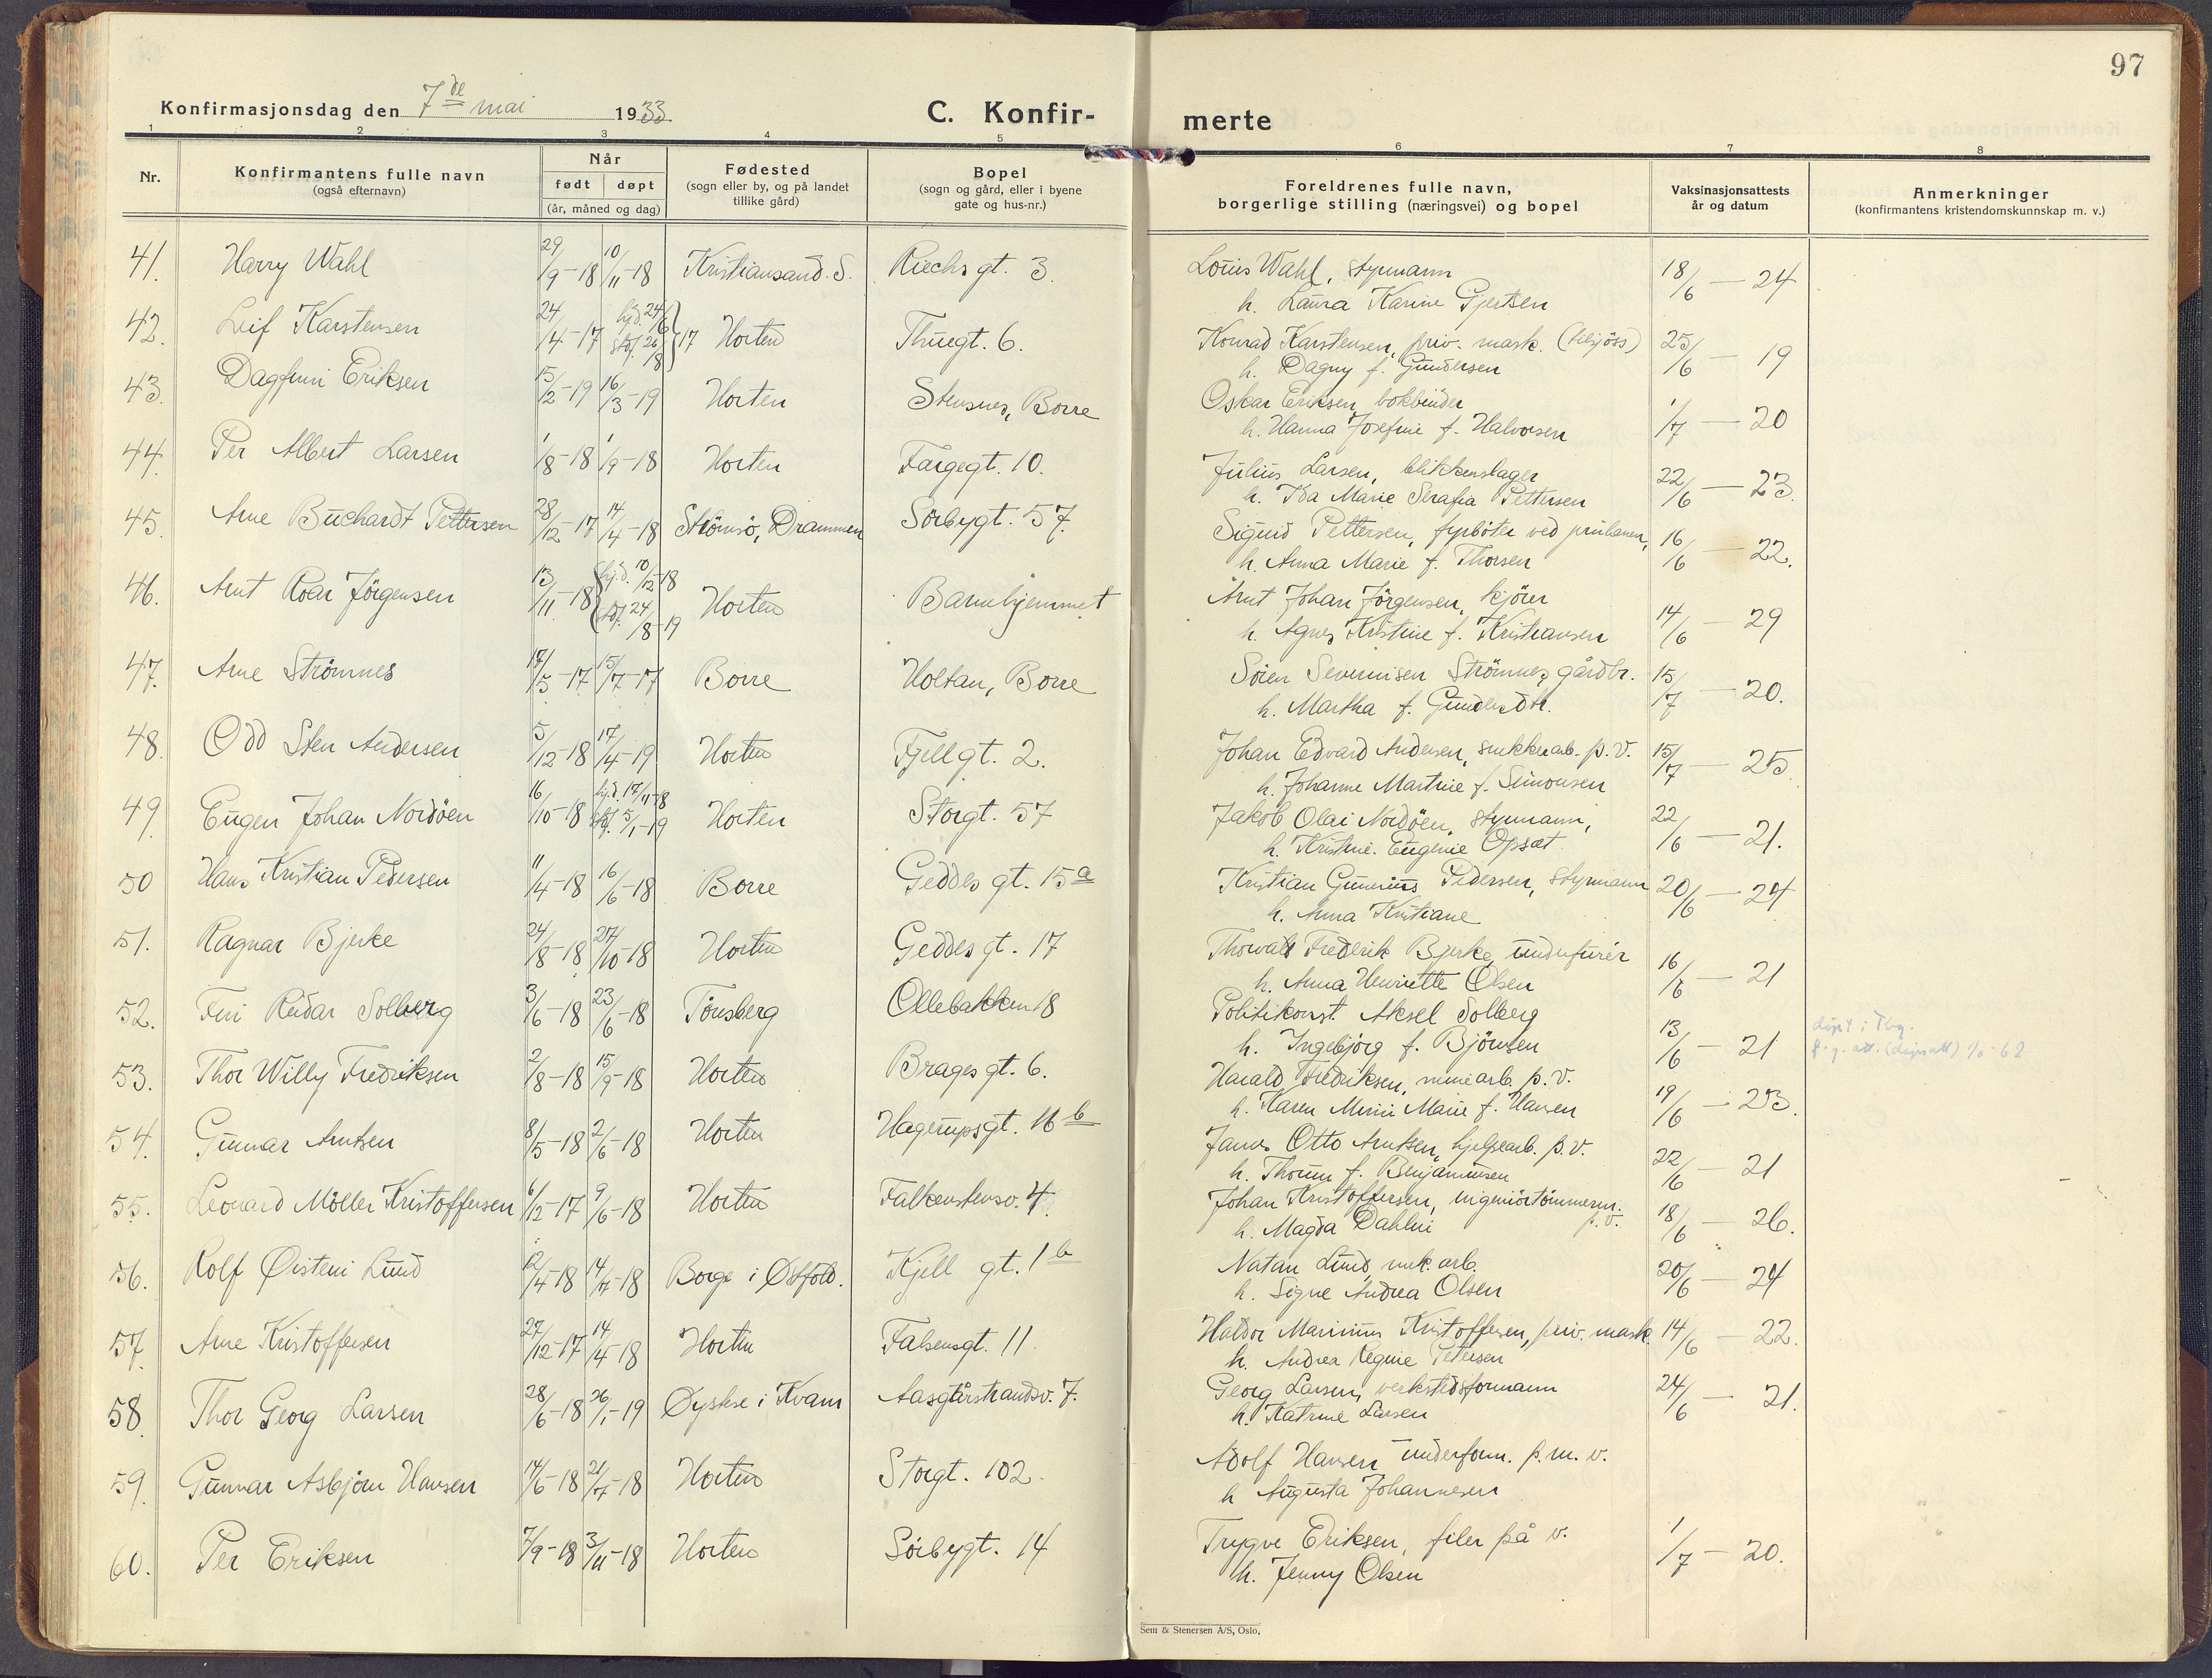 97
Konfirmasjonsdag den 7de mai 1933
C. Konfir-
merte
1 2 3 4 5 6 7 8
Nr.
Konfirmantens fulle navn
(også efternavn)
Når
født døpt
(år, måned og dag)
Fødested
(sogn eller by, og på landet
tillike gård)
Bopel
(sogn og gård, eller i byene
gate og hus-nr.)
Foreldrenes fulle navn,
borgerlige stilling (næringsvei) og bopel
Vaksinasjonsattests
år og datum
Anmerkninger
(konfirmantens kristendomskunnskap m. v.)
41. Harry Wahl 29/9-18 10/11-18 Kristiansand. S. Riechs gt. 3. Louis Wahl, styrmann 18/6 - 24
h. Laura Karine Gjertsen
42. Leif Karstensen 24/4-17 hjd. 24/6 stdf. 26/8 } 17 Horten Thuegt. 6. Konrad Karstensen, priv. mask. (tilsjöss) 25/6 - 19
h. Dagny f. Gundersen
43. Dagfinn Eriksen 15/2-19 16/3-19 Horten Stensnes, Borre Oskar Eriksen, bokbinder 1/7 - 20
h. Hanna Josefine f. Halvorsen
44. Per Albert Larsen 1/8-18 1/9-18 Horten Fargegt. 10. Julius Larsen, blikkenslager 22/6 - 23.
h. Ida Marie Serafia Pettersen
45. Arne Buchardt Pettersen 28/12-17 14/4-18 Strömsö, Drammen Sörbygt. 57. Sigurd Pettersen, fyrböter ved 16/6 - 22.
h. Anna Marie f. Thorsen
46. Arnt Roar Jörgensen 13/11-18 hjd. 10/12-18 stdf. 24/8-19 Horten Barnehjemmet Arnt Johan Jörgensen, kjörer 14/6 - 29
h. Agnes Kristine f. Kristiansen
47. Arne Strömnes 17/5-17 15/7-17 Borre Holtan, Borre Sören Severinsen Strömnes, gårdbr. 15/7 - 20.
h. Martha f. Gundersdtr.
48. Odd Sten Andersen 5/12-18 17/4-19 Horten Fjellgt. 2. Johan Edvard Andersen, snekkerarb. p. v. 15/7 - 25
h. Johanne Martine f. Simonsen
49. Eugen Johan Nordöen 16/10-18 hjd. 17/11-18 stdf. 5/1-19 Horten Storgt. 57 Jakob Olai Nordöen, styrmann, 22/6 - 21.
h. Kristine Eugenie Opsæt
50 Hans Kristian Pedersen 11/4-18 16/6-18 Borre Geddes gt. 15a Kristian Gunerius Pedersen, styrmann 20/6 - 24
h. Anna Kristiane
51. Ragnar Bjerke 24/8-18 27/10-18 Horten Geddes gt. 17 Thorvald Fredrik Bjerke, underfurér 16/6 - 21
h. Anna Henriette Olsen
52. Finn Reidar Solberg 3/6-18 23/6-18 Tönsberg Ollebakken 18 Politikonst. Aksel Solberg 13/6 - 21
h. Ingebjörg f. Björnsen
döpt i Tbg.
53. Thor Willy Fredriksen 2/8-18 15/9-18 Horten Brages gt. 6. Harald Fredriksen, minearb. p. v. 19/6 - 23.
h. Karen Mimi Marie f. Hansen
54. Gunnar Arntsen 8/5-18 2/6-18 Horten Hagerupsgt. 16 b Otto Arntsen, hjelpearb. p. v. 22/6 - 21
h. f. Benjaminsen
55. Leonard Möller Kristoffersen 6/12-17 9/6-18 Horten Falkenstensv. 4. Johan Kristoffersen, ingeniörtömmerm. p. v. 18/6 - 26.
h. Magda Dahlin
56. Rolf Øistein Lund 12/4-18 14/7-18 Borge i Østfold. Kjell gt. 1 b Natan Lund, mek. arb. 20/6 - 24
h. Signe Andrea Olsen
57. Arne Kristoffersen 27/12-17 14/4-18 Horten Falsensgt. 11 Haldor Marinius Kristoffersen, priv. mask. 14/6 - 22.
h. Andrea Regine Petersen
58. Thor Georg Larsen 28/6-18 26/1-19 Øystese i Kvam Aasgårstrandsv. 7. Georg Larsen, verkstedsformann 24/6 - 21.
h. Katrine Larsen
59. Gunnar Asbjörn Hansen 14/6-18 21/7-18 Horten Storgt. 102. Adolf Hansen underform. p. m. v.
h Augusta Johannesen
60. Per Eriksen 7/9-18 3/11-18 Horten Sörbygt. 14 Trygve Eriksen, filer på v. 1/7 - 20.
h. Jenny Olsen
Sem & Stenersen A/S, Oslo.